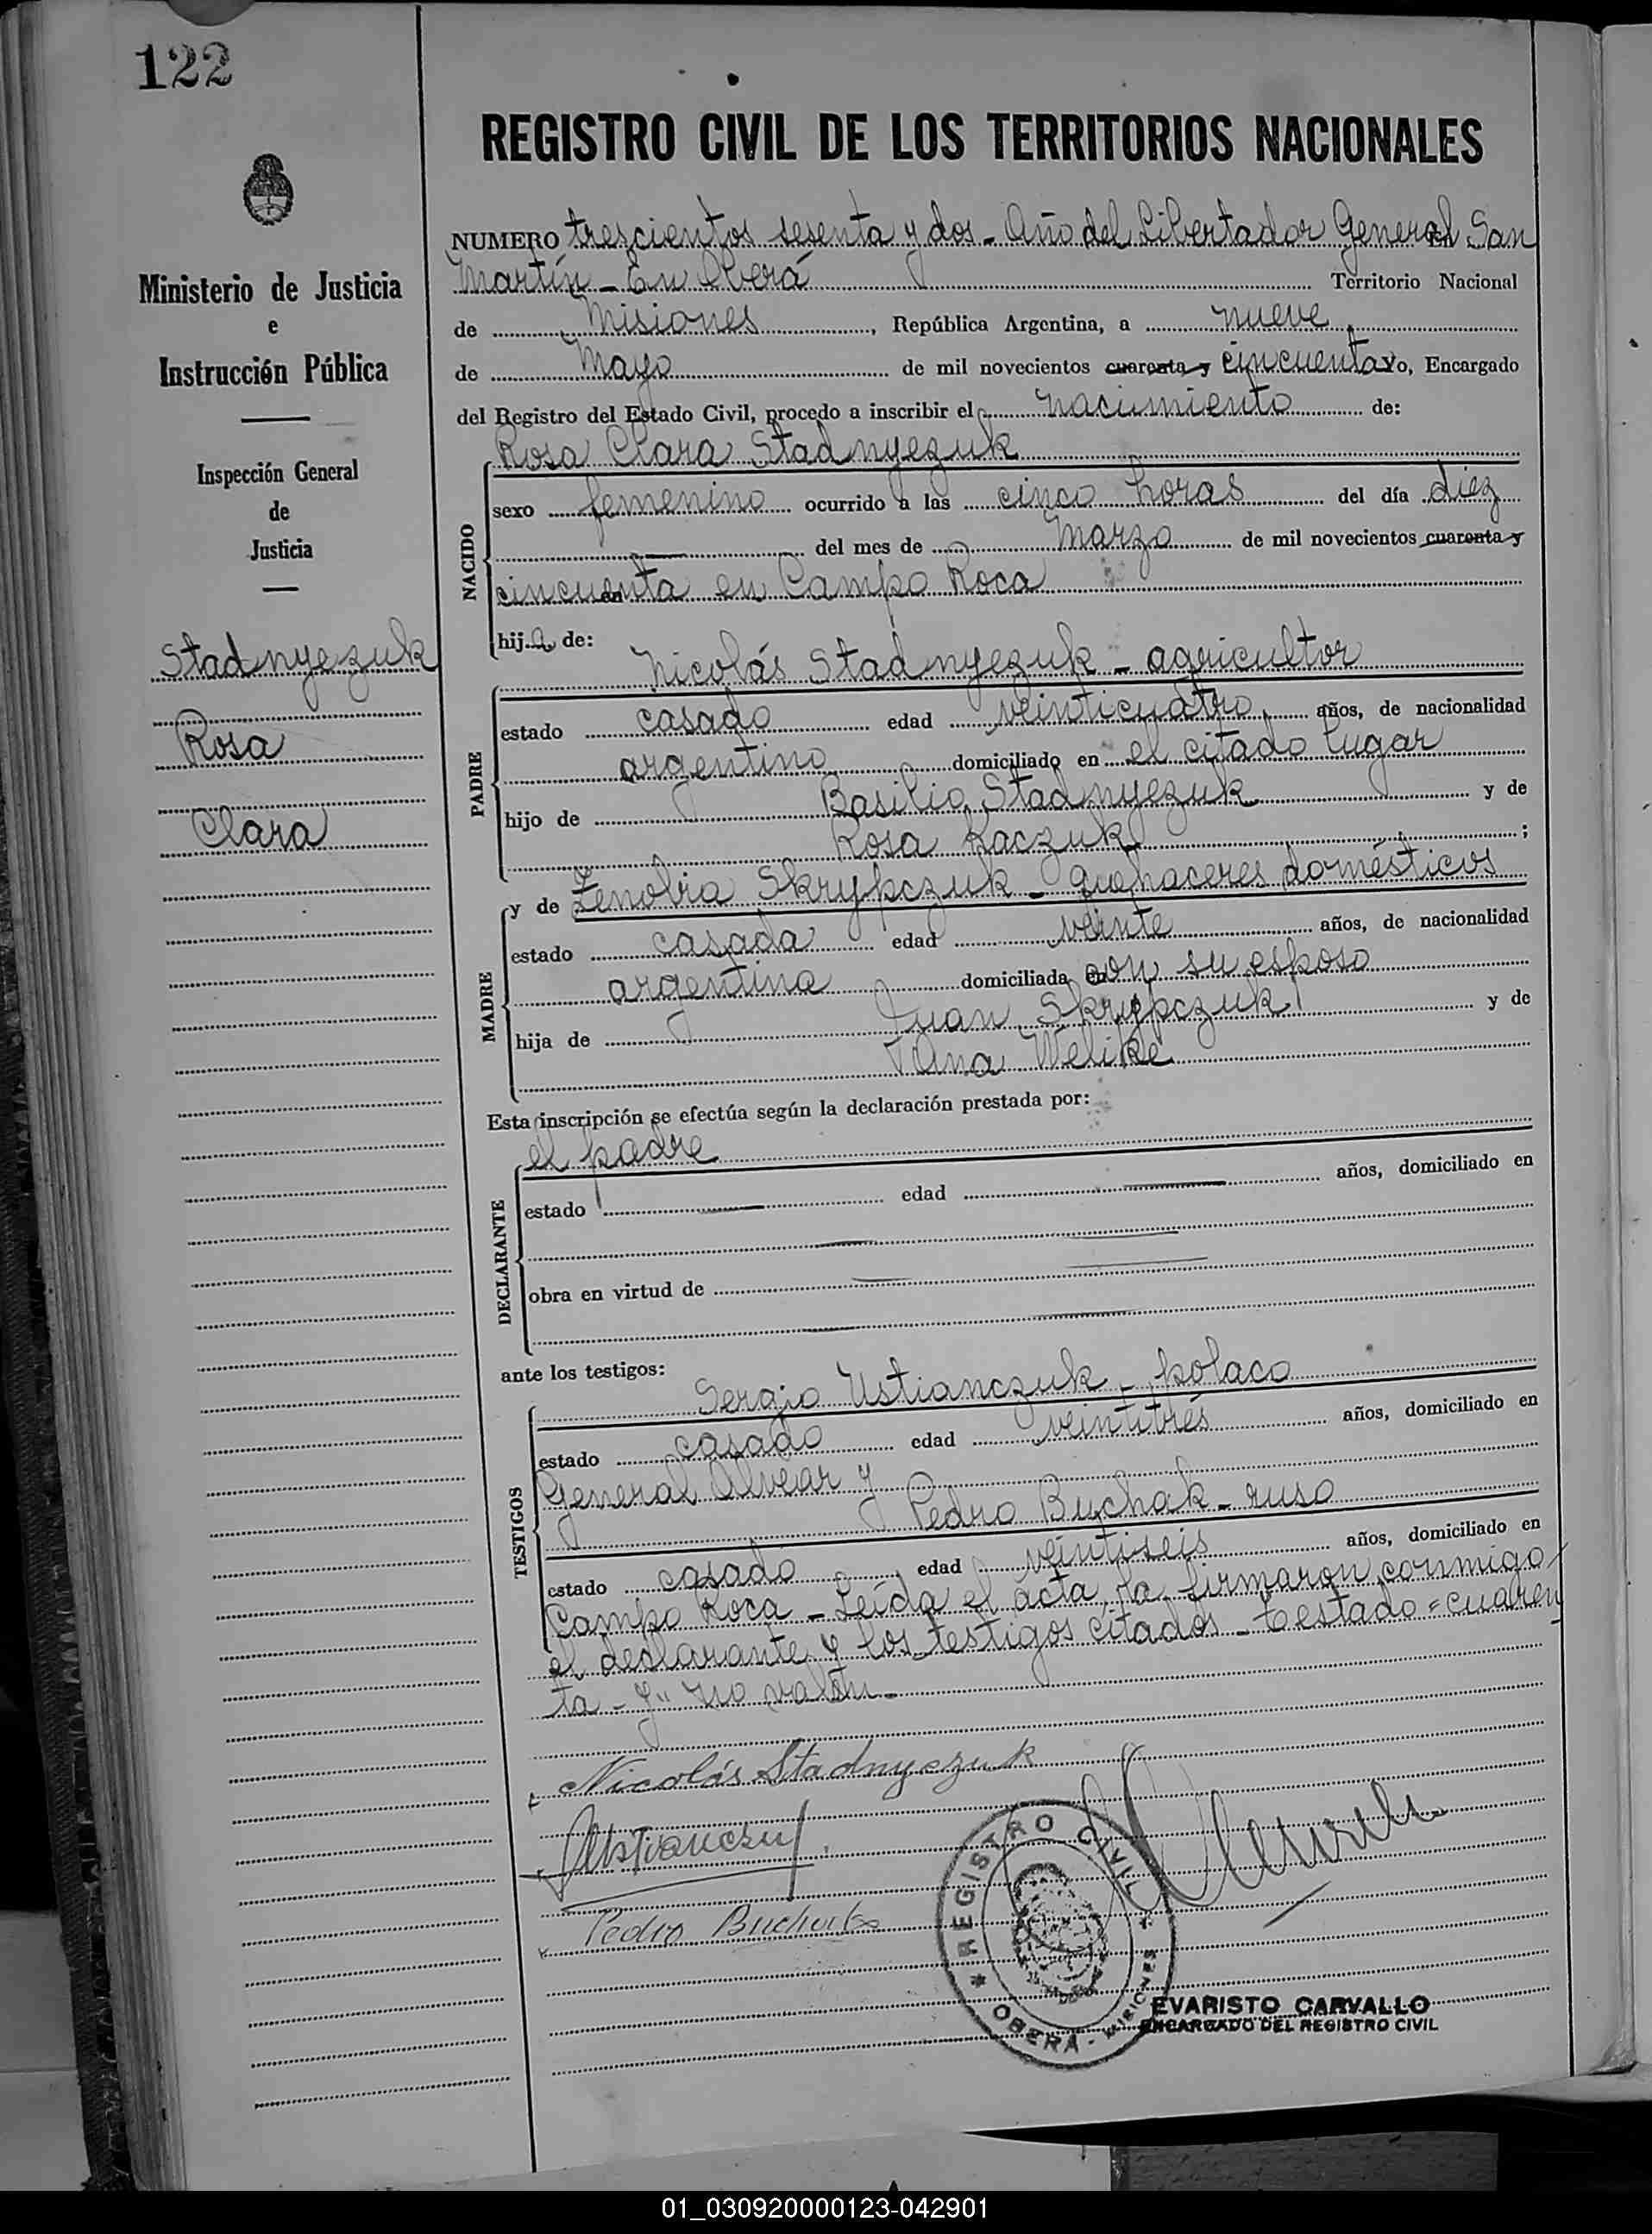 122
REGISTRO CIVIL DE LOS TERRITORIOS NACIONALES
Ministerio de Justicia
e
Instrucción Pública
Inspección General
de
Justicia
Stadnyezuk
Rosa
Clara
NUMERO trescientos sesenta y dos - Año del Libertador General San
Martín - En Oberá Territorio Nacional
de Misiones, República Argentina, a nueve
de Mayo de mil novecientos cuarenta y cincuenta yo, Encargado
del Registro del Estado Civil, procedo a inscribir el nacimiento de:
Rosa Clara Stadnyezuk
NACIDO
sexo femenino ocurrido a las cinco horas del día diez
del mes de Marzo de mil novecientos cuarenta y
cincuenta en Campo Roca
hija de:
Nicolás Stadnyezuk - agricultor
PADRE
estado casado edad veinticuatro años, de nacionalidad
argentino domiciliado en el citado lugar
hijo de Basilio Stadnyezuk y de
Rosa Kaczuk;
y de Zenobia Skrypczuk - quehaceres domésticos
MADRE
estado casada edad veinte años, de nacionalidad
argentina domiciliada con su esposo
hija de Juan Skrypczuk y de
Ana Welike
Esta inscripción se efectúa según la declaración prestada por:
el padre
DECLARANTE
estado edad años, domiciliado en
obra en virtud de
ante los testigos:
Sergio Ustianczuk - polaco
TESTIGOS
estado casado edad veintitrés años, domiciliado en
General Alvear y
Pedro Buchak - ruso
estado casado edad veintiseis años, domiciliado en
Campo Roca - Leída el acta, la firmaron conmigo
el declarante y los testigos citados - testado = cuaren
ta - y" no valen -
Nicolás Stadnyczuk
Pedro
REGISTRO CIVIL
OBERA - MISIONES
EVARISTO CARVALLO
ENCARGADO DEL REGISTRO CIVIL
01_030920000123-042901